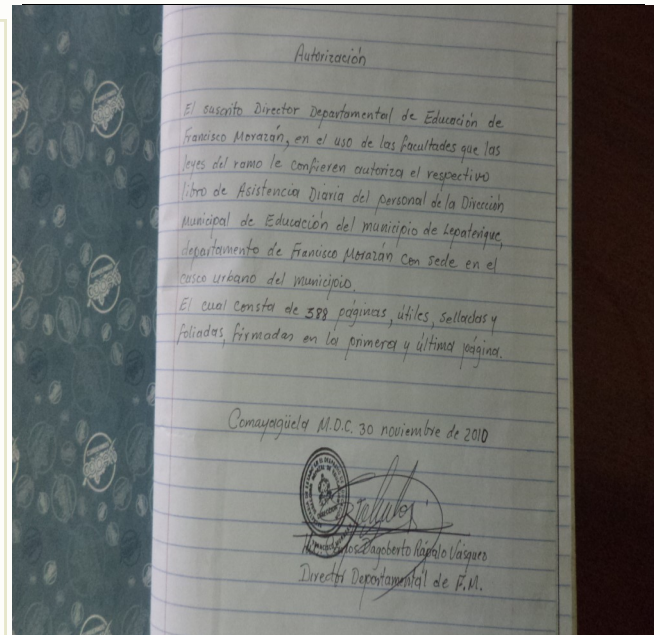 Autorización
El suscrito Director Departamental de Educación de
Francisco Morazán, en el uso de las facultades que las
leyes del ramo le confieren autoriza el respectivo
libro de Asistencia Diaria del personal de la Dirección
Municipal de Educación del municipio de Lepaterique,
departamento de Francisco Morazán con sede en el
casco urbano del municipio.
El cual consta de 388 páginas, útiles, selladas y
foliadas, firmadas en la primera y última página.
Comayagüela M.D.C. 30 noviembre de 2010
Dagoberto Rápalo Vásquez
Director Departamental de F.M.